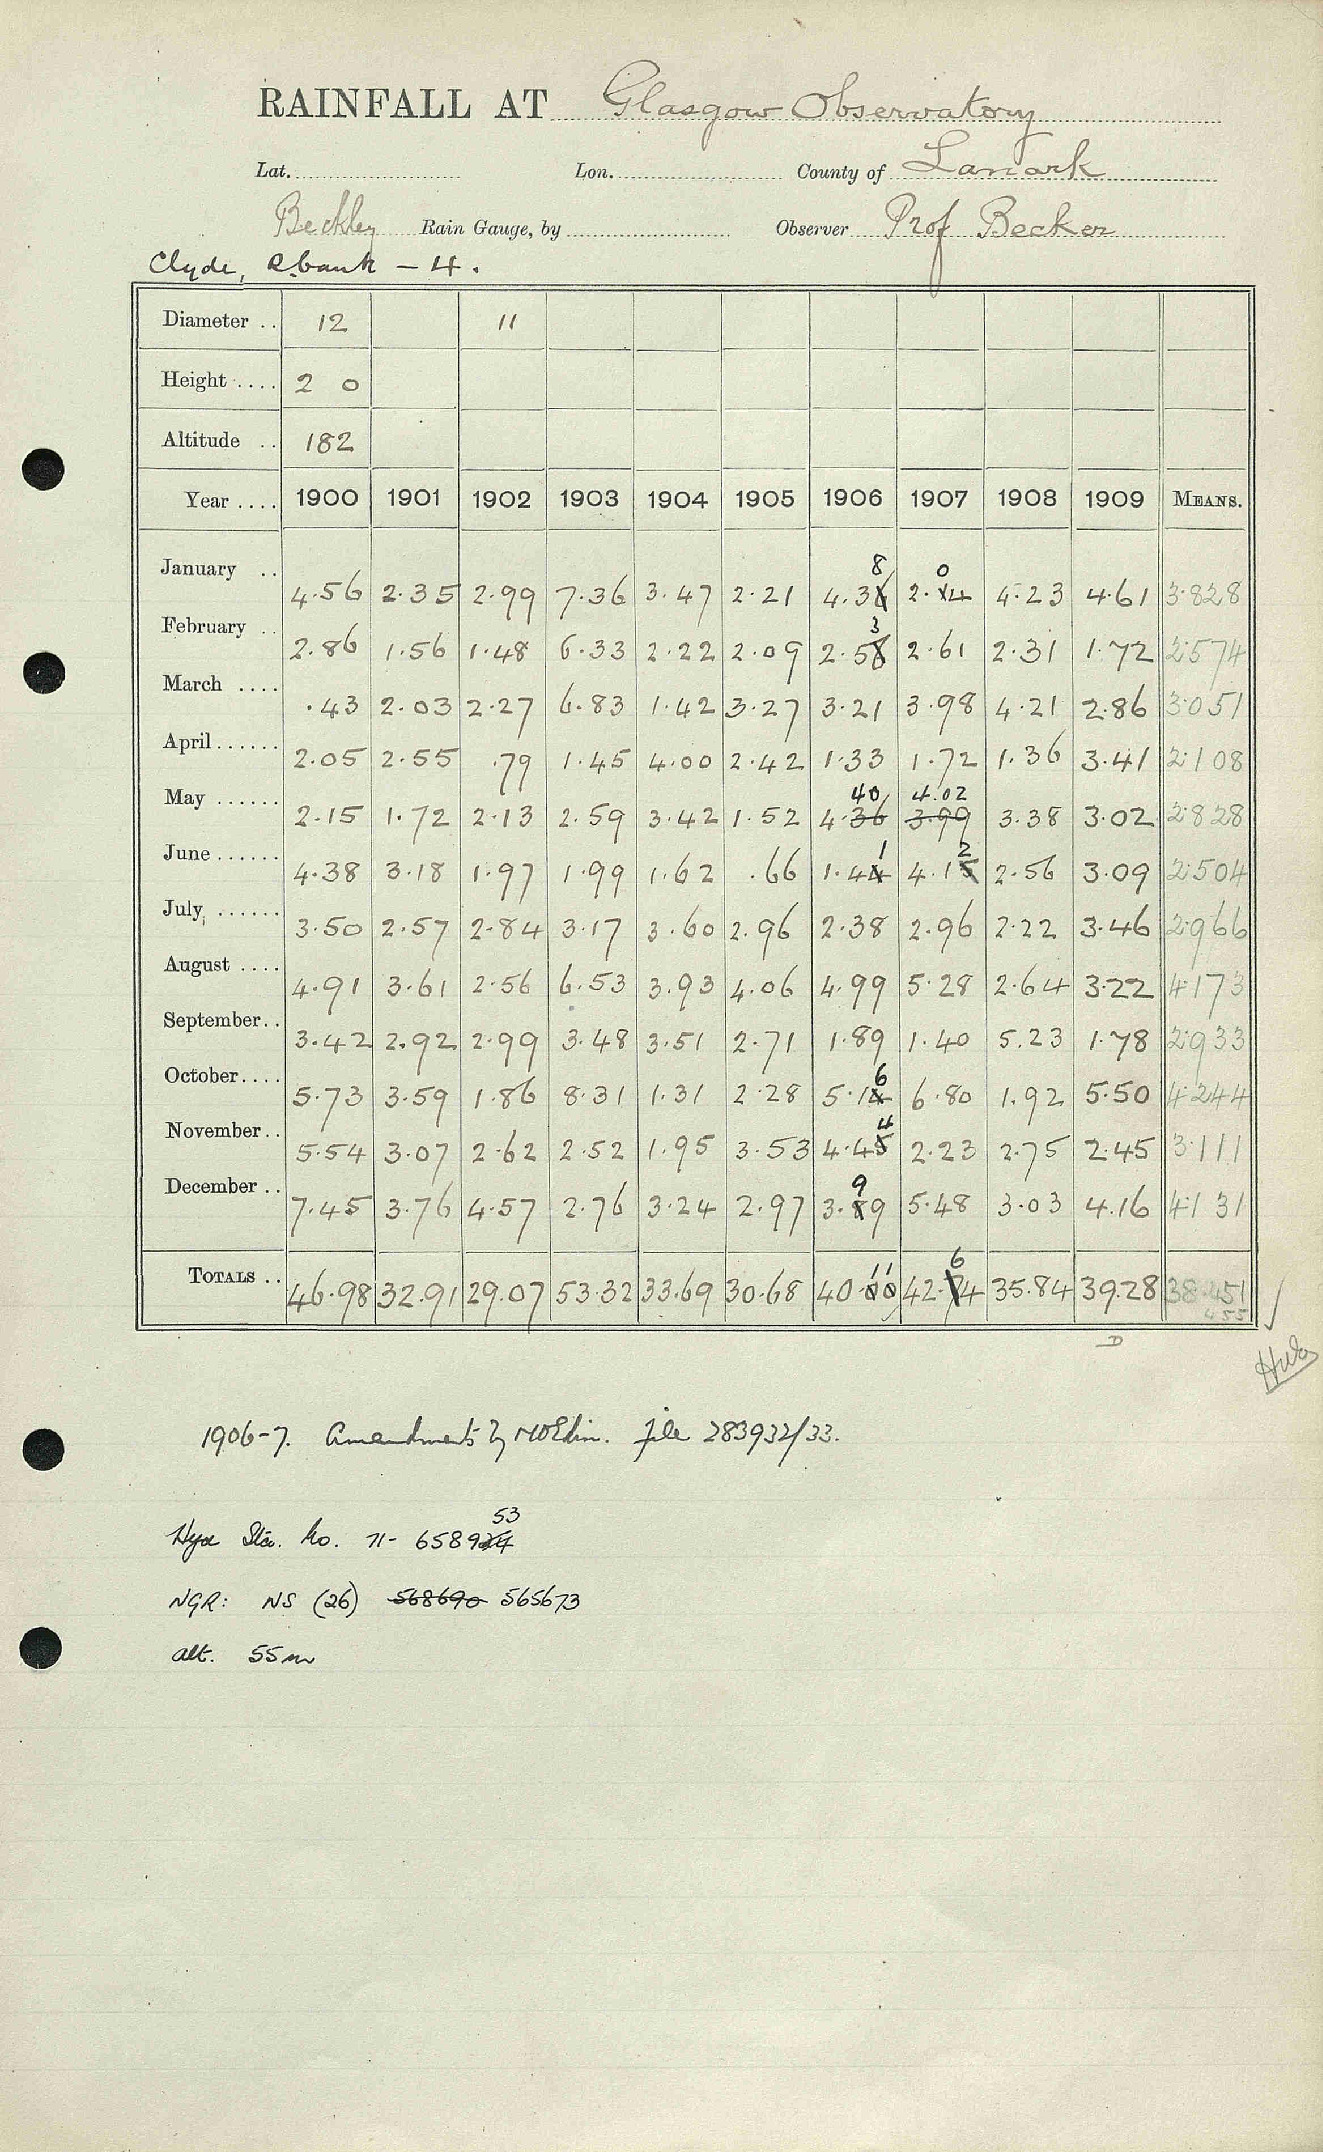 RAINFALL AT Glasgow Observatory
Lat. Lon. County of Lanark
Beckley Rain Gauge, by Observer Prof Becker
Clyde, R. bank – 4.
Diameter .. 12 11
Height .... 2 0
Altitude .. 182
Year .... 1900 1901 1902 1903 1904 1905 1906 1907 1908 1909 MEANS.
8 0
January .. 4.56 2.35 2.99 7.36 3.47 2.21 4.36 2.14 4.23 4.61 3.828
3
February .. 2.86 1.56 1.48 6.33 2.22 2.09 2.58 2.61 2.31 1.72 2.574
March .... .43 2.03 2.27 6.83 1.42 3.27 3.21 3.98 4.21 2.86 3.051
April ...... 2.05 2.55 .79 1.45 4.00 2.42 1.33 1.72 1.36 3.41 2.108
40 4.02
May ...... 2.15 1.72 2.13 2.59 3.42 1.52 4.36 3.99 3.38 3.02 2.828
1 2
June ...... 4.38 3.18 1.97 1.99 1.62 .66 1.44 4.15 2.56 3.09 2.504
July ...... 3.50 2.57 2.84 3.17 3.60 2.96 2.38 2.96 2.22 3.46 2.966
August .... 4.91 3.61 2.56 6.53 3.93 4.06 4.99 5.28 2.64 3.22 4.173
September.. 3.42 2.92 2.99 3.48 3.51 2.71 1.89 1.40 5.23 1.78 2.933
6
October.... 5.73 3.59 1.86 8.31 1.31 2.28 5.14 6.80 1.92 5.50 4.244
4
November.. 5.54 3.07 2.62 2.52 1.95 3.53 4.45 2.23 2.75 2.45 3.111
9
December .. 7.45 3.76 4.57 2.76 3.24 2.97 3.89 5.48 3.03 4.16 4.131
11 6
TOTALS .. 46.98 32.91 29.07 53.32 33.69 30.68 40.00 42.74 35.84 39.28 38.451
455
D
1906-7. Amendments by MO Edin. file 283932/33.
53
Hyd Sta. No. 71- 658924
NGR: NS (26) 568690 565673
alt. 55m